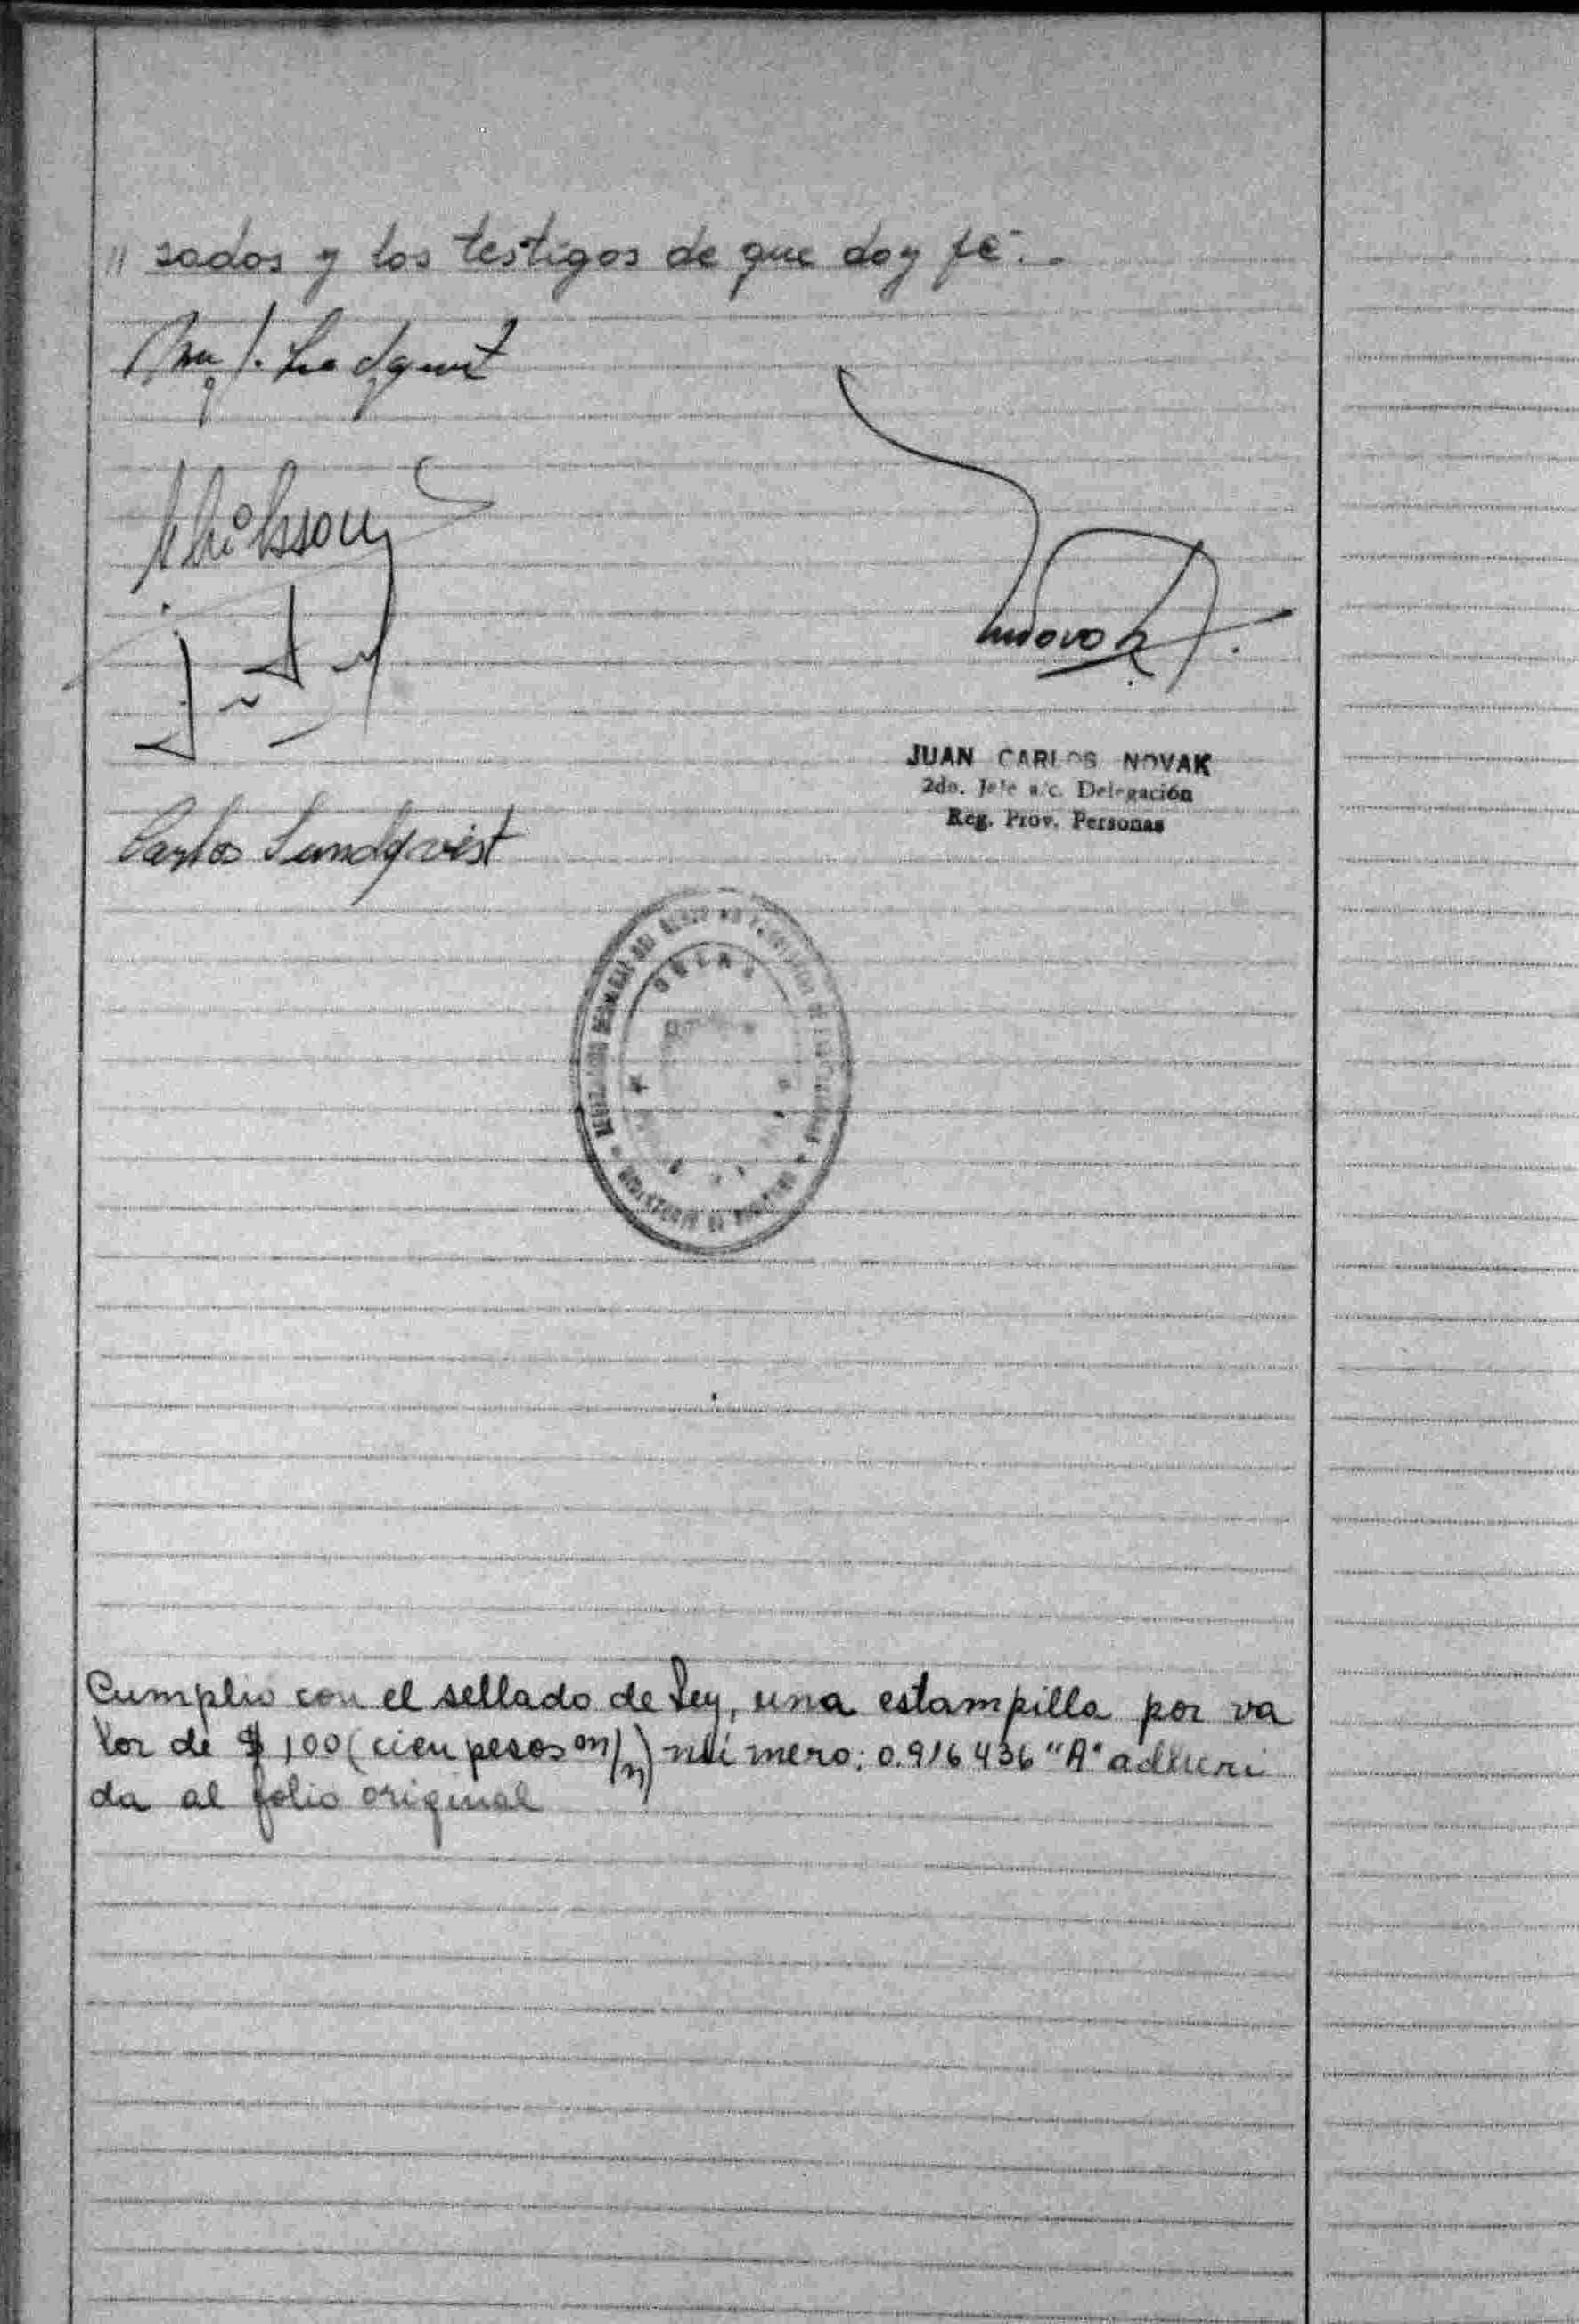 " sados y los testigos de que doy fé..
Carlos Sundqvist
Novak
JUAN CARLOS NOVAK
2do. Jefe a/c. Delegación
Reg. Prov. Personas
OBERA
Cumplio con el sellado de Ley, una estampilla por va
lor de $ 100 (cien pesos m/n) número: 0.916436 "A" adheri
da al folio original